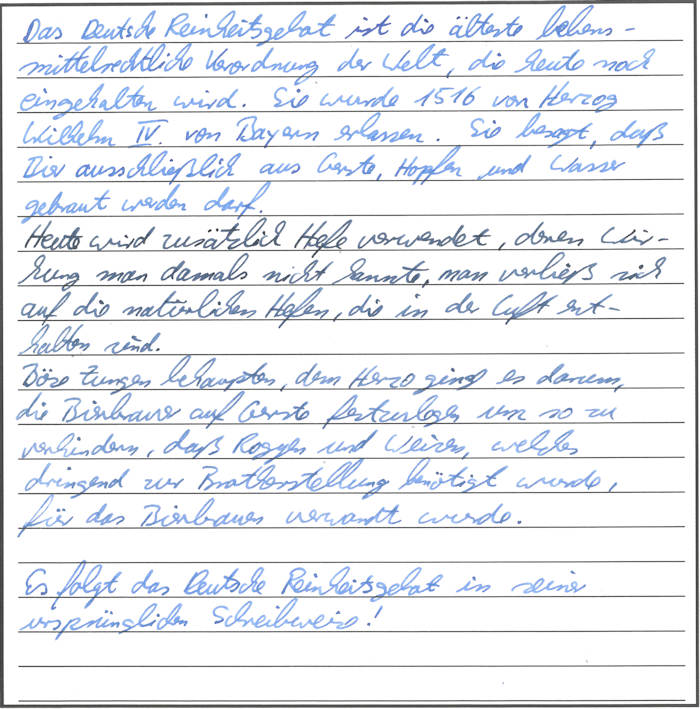 Das Deutsche Reinheitsgebot ist die älteste lebens-
mittelrechtliche Verordnung der Welt, die heute noch
eingehalten wird. Sie wurde 1516 von Herzog
Wilhelm IV. von Bayern erlassen. Sie besagt, daß
Bier ausschließlich aus Gerste, Hopfen und Wasser
gebraut werden darf.
Heute wird zusätzlich Hefe verwendet, deren Wir-
kung man damals nicht kannte, man verließ sich
auf die natürlichen Hefen, die in der Luft ent-
halten sind.
Böse Zungen behaupten, dem Herzog ging es darum,
die Bierbrauer auf Gerste festzulegen um so zu
verhindern, daß Roggen und Weizen, welches
dringend zur Brotherstellung benötigt wurde,
für das Bierbrauen verwandt wurde.
Es folgt das Deutsche Reinheitsgebot in seiner
ursprünglichen Schreibweise!